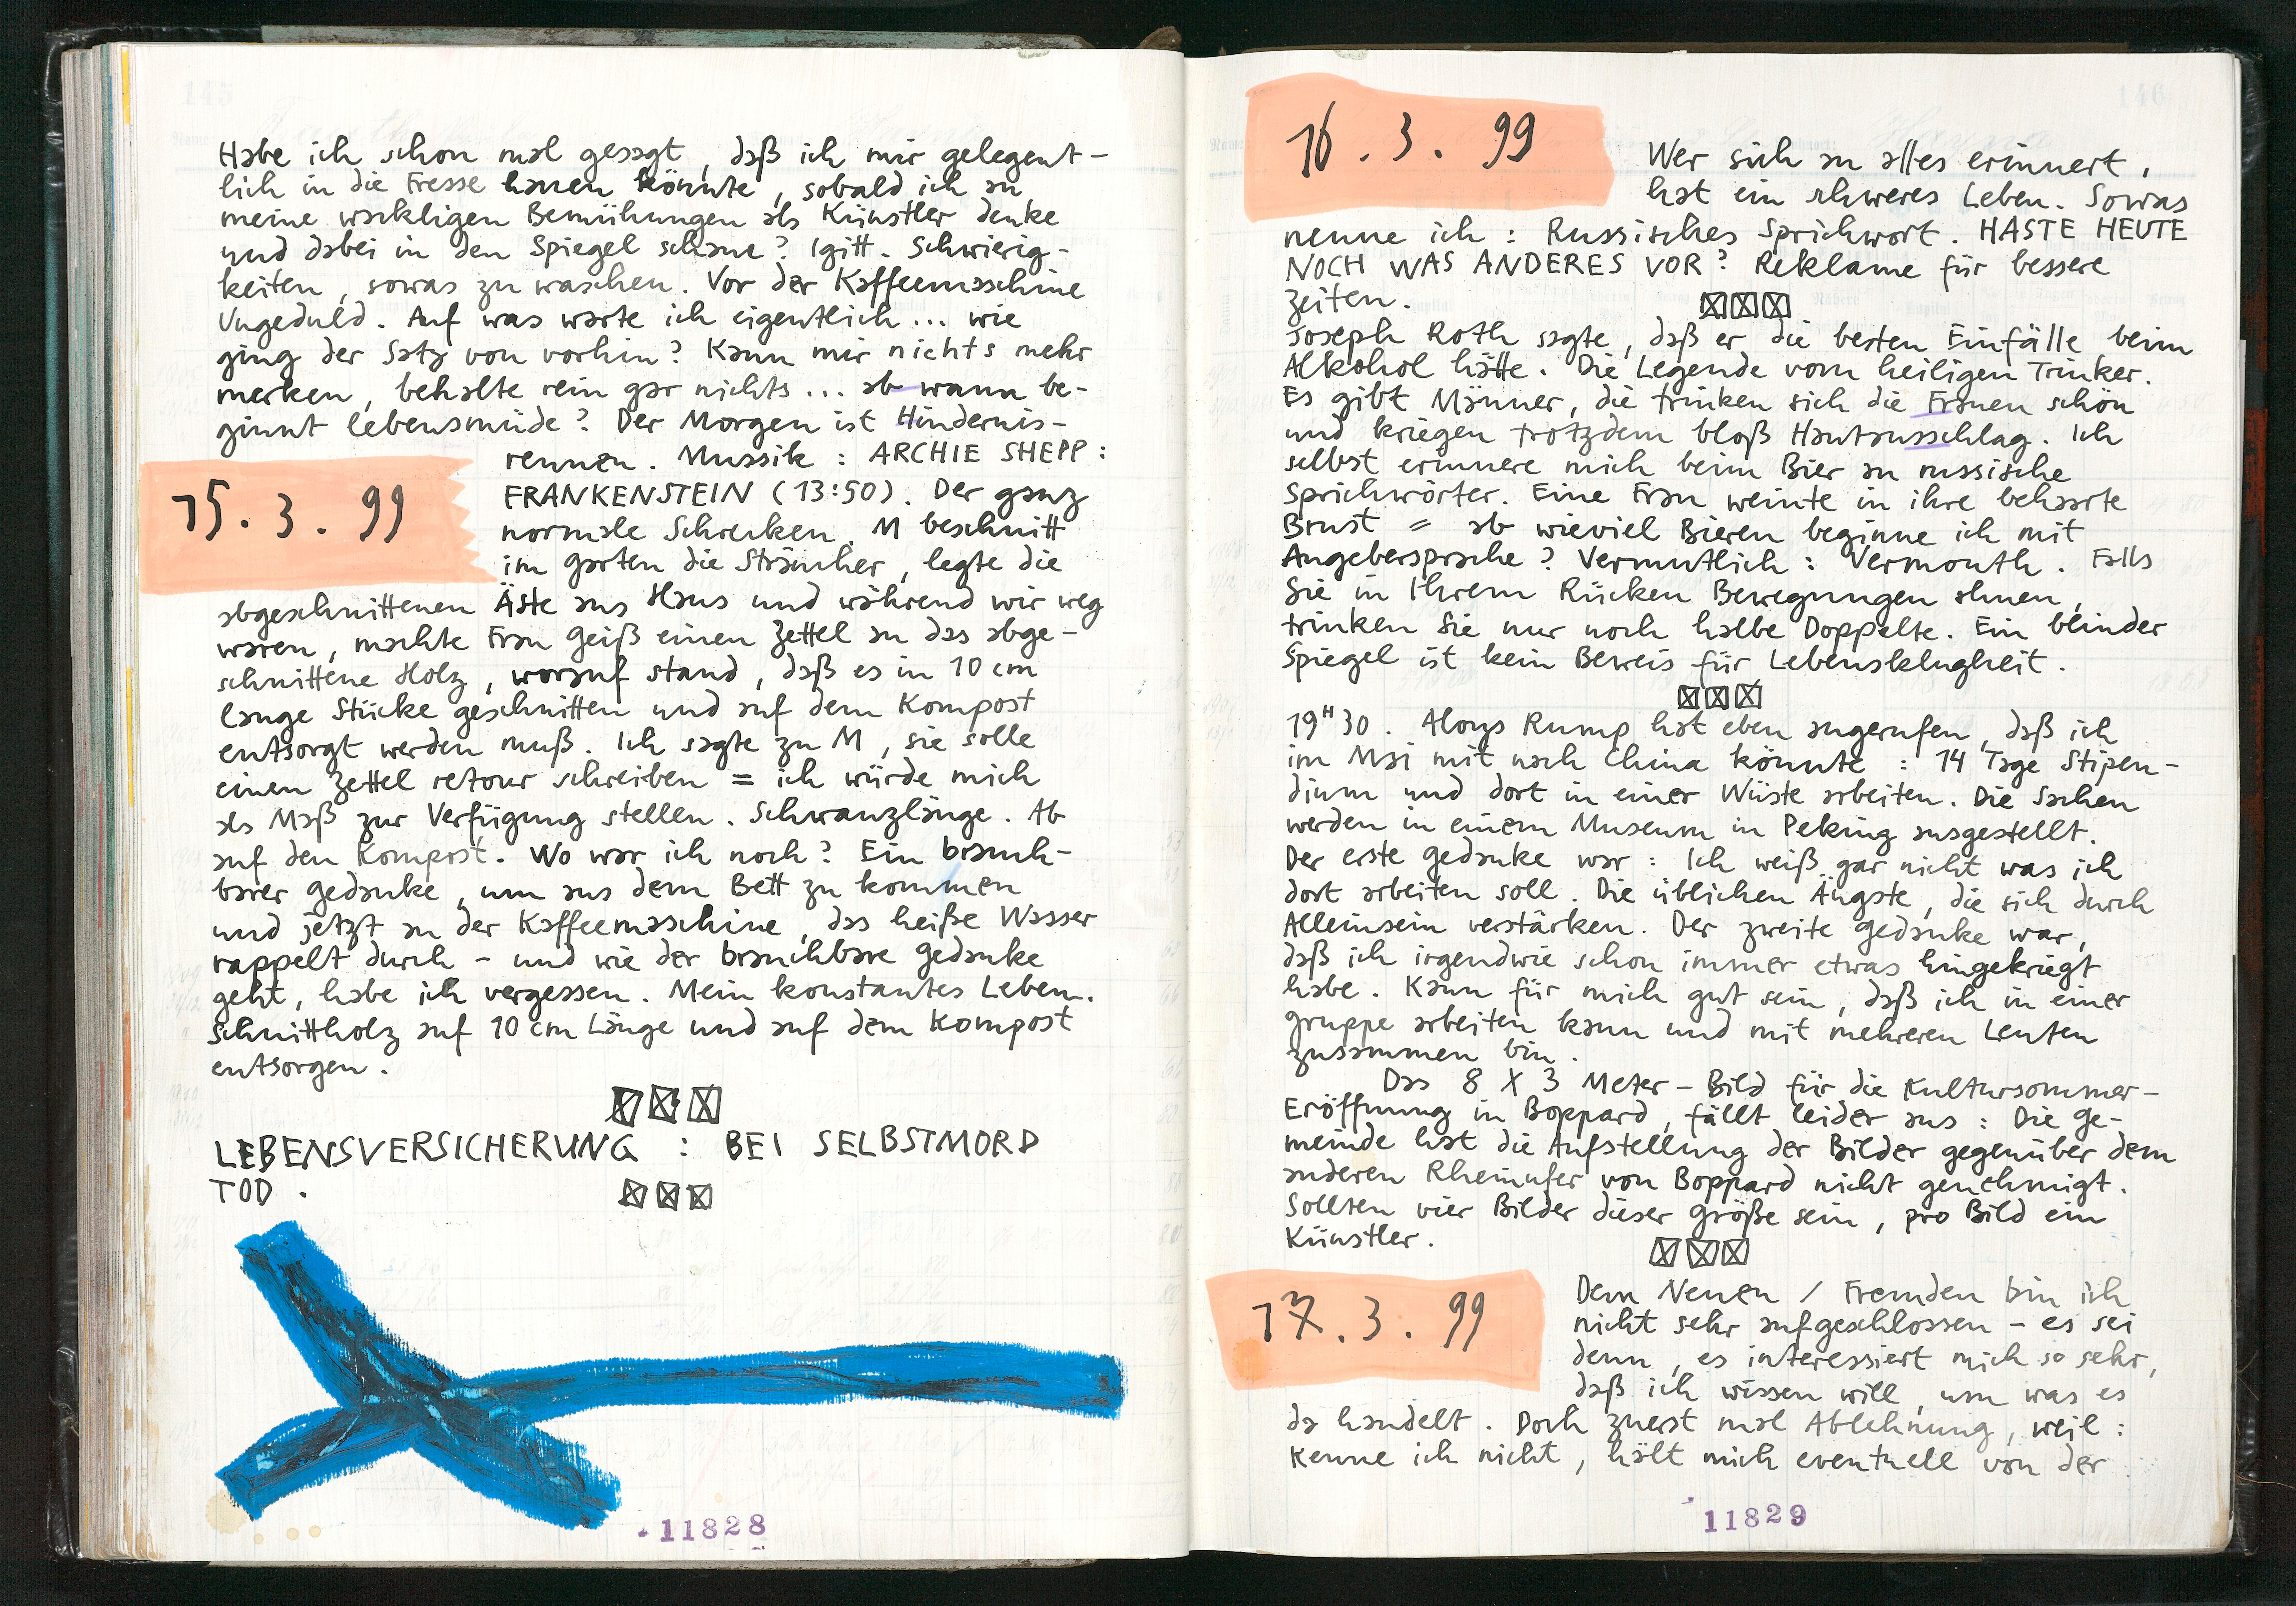 Habe ich schon mal gesagt, daß ich mir gelegent-
lich in die Fresse hauen könnte, sobald ich an
meine wackligen Bemühungen als Künstler denke
und dabei in den Spiegel schaue? Igitt. Schwierig-
keiten, sowas zu waschen. Vor der Kaffeemaschine
Ungeduld. Auf was warte ich eigentlich... wie
ging der Satz von vorhin? Kann mir nichts mehr
merken, behalte rein gar nichts... ab wann be-
ginnt lebensmüde? Der Morgen ist Hindernis-
rennen. Mussik: ARCHIE SHEPP:
15.3.99
FRANKENSTEIN (13:50). Der ganz
normale Schrecken. M beschnitt
im Garten die Sträucher, legte die
abgeschnittenen Äste aus Haus und während wir weg
waren, machte Frau Geiß einen Zettel an das abge-
schnittene Holz, worauf stand, daß es in 10 cm
lange Stücke geschnitten und auf dem Kompost
entsorgt werden muß. Ich sagte zu M, sie solle
einen Zettel retour schreiben = ich würde mich
als Maß zur Verfügung stellen. Schwanzlänge. Ab
auf den Kompost. Wo war ich noch? Ein brauch-
barer Gedanke, um aus dem Bett zu kommen
und jetzt an der Kaffeemaschine, das heiße Wasser
rappelt durch - und wie der brauchbare Gedanke
geht, habe ich vergessen. Mein konstantes Leben.
Schnittholz auf 10 cm Länge und auf dem Kompost
entsorgen.
LEBENSVERSICHERUNG: BEI SELBSTMORD
TOD.
11828
145
146
16.3.99
Wer sich an alles erinnert,
hat ein schweres Leben. Sowas
nenne ich: Russisches Sprichwort. HASTE HEUTE
NOCH WAS ANDERES VOR? Reklame für bessere
Zeiten.
Joseph Roth sagte, daß er die besten Einfälle beim
Alkohol hätte. Die Legende vom heiligen Trinker.
Es gibt Männer, die trinken sich die Frauen schön
und kriegen trotzdem bloß Hautausschlag. Ich
selbst erinnere mich beim Bier an russische
Sprichwörter. Eine Frau weinte in ihre behaarte
Brust = ab wieviel Bieren beginne ich mit
Angebersprache? Vermutlich: Vermouth. Falls
Sie in Ihrem Rücken Bewegungen ahnen,
trinken Sie nur noch halbe Doppelte. Ein blinder
Spiegel ist kein Beweis für Lebensklugheit.
19H30. Aloys Rump hat eben angerufen, daß ich
im Mai mit nach China könnte: 14 Tage Stipen-
dium und dort in einer Wüste arbeiten. Die Sachen
werden in einem Museum in Peking ausgestellt.
Der erste Gedanke war: Ich weiß gar nicht was ich
dort arbeiten soll. Die üblichen Ängste, die sich durch
Alleinsein verstärken. Der zweite Gedanke war,
daß ich irgendwie schon immer etwas hingekriegt
habe. Kann für mich gut sein, daß ich in einer
Gruppe arbeiten kann und mit mehreren Leuten
zusammen bin.
Das 8 X 3 Meter-Bild für die Kultursommer-
Eröffnung in Boppard, fällt leider aus: Die Ge-
meinde hat die Aufstellung der Bilder gegenüber dem
anderen Rheinufer von Boppard nicht genehmigt.
Sollten vier Bilder dieser Größe sein, pro Bild ein
Künstler.
17.3.99
Dem Neuen / Fremden bin ich
nicht sehr aufgeschlossen - es sei
denn, es interessiert mich so sehr,
daß ich wissen will, um was es
da handelt. Doch zuerst mal Ablehnung, weil:
Kenne ich nicht, hält mich eventuell von der
11829